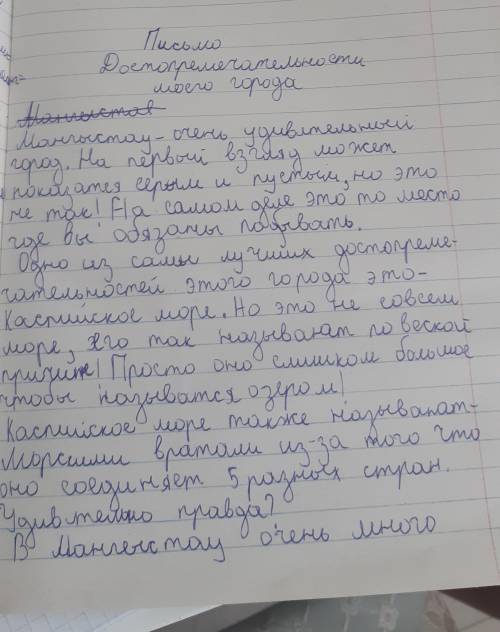 Письмо
Достопремечательности
моего города
Мангыстау
Мангыстау - очень удивительный
город. На первый взгляд может
показатся серым и пустым, но это
не так! На самом деле это то место
где вы обязаны побывать.
Одно из самы лучших достопреме-
чательностей этого города это -
Каспииское море. Но это не совсем
море, его так называют по веской
причине! Просто оно слишком большое
чтобы называтся озером!
Каспийское море также называют -
Морсими вратами из-за того что
оно соединяет 5 разных стран.
Удивтельно правда?
В Мангыстау очень много